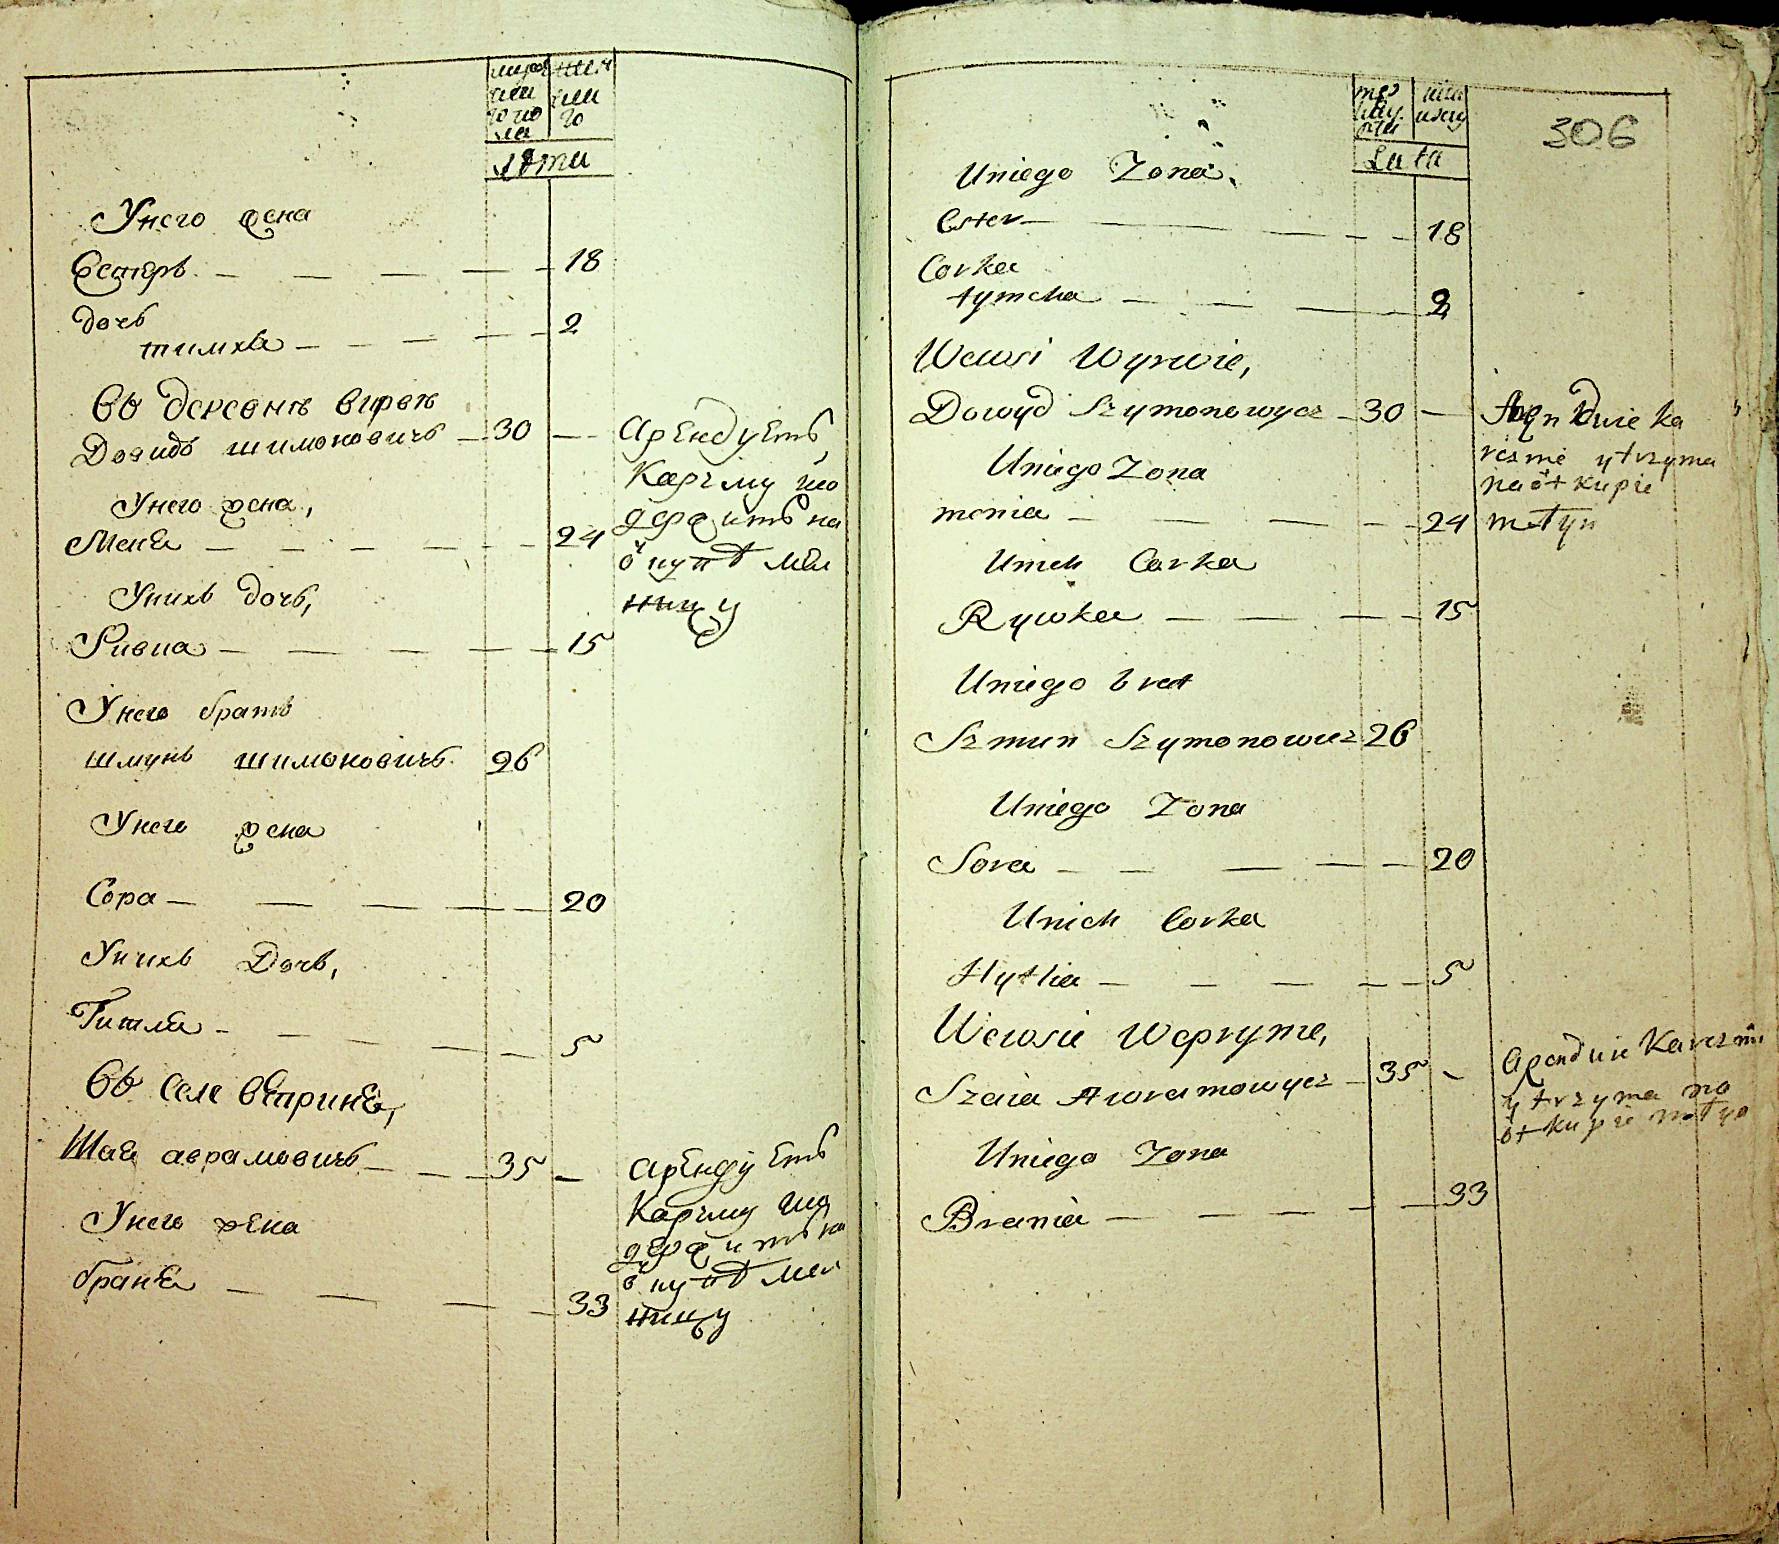 мужес
ска
го по
ла
женс
ска
го
лѣта
У него жена
Естерь 18
дочь
тимха 2
Въ деревнѣ вирвѣ
Довидъ шимоновичъ 30 арендуетъ
Карчму и со
держитъ на
У него жена,
Меня 24
ѿкупѣ мел
ницу
У нихъ дочь,
Ривка 15
У него братъ
шмунь шимоновичъ 26
У него жена
Сора 20
У нихъ Дочь,
Гитля 5
Въ селе вепринѣ,
Шая аврамовичъ 35 арендуетъ
Карчму и со
держитъ на
ѿкупѣ мел
ницу
У него жена
браня 33
306
Lata
Uniego Zona,
Ester 18
Corka
tymcha 2
Wewsi Wyrwie,
Dowyd Szymonowycz 30 Aręnduie ka
rczme ytrzyma
na otkupie
młyn
Uniego Zona
menia 24
Unich Corka
Rywka 15
Uniego brat
Szmun Szymonowicz 26
Uniego Zona
Sora 20
Unich Corka
Hytlia 5
Wewsie Weprynie,
Szaia Awramowycz 35 Arenduie Karczmi
ytrzyma na
otkupie młyn
Uniego Zona
Brania 33